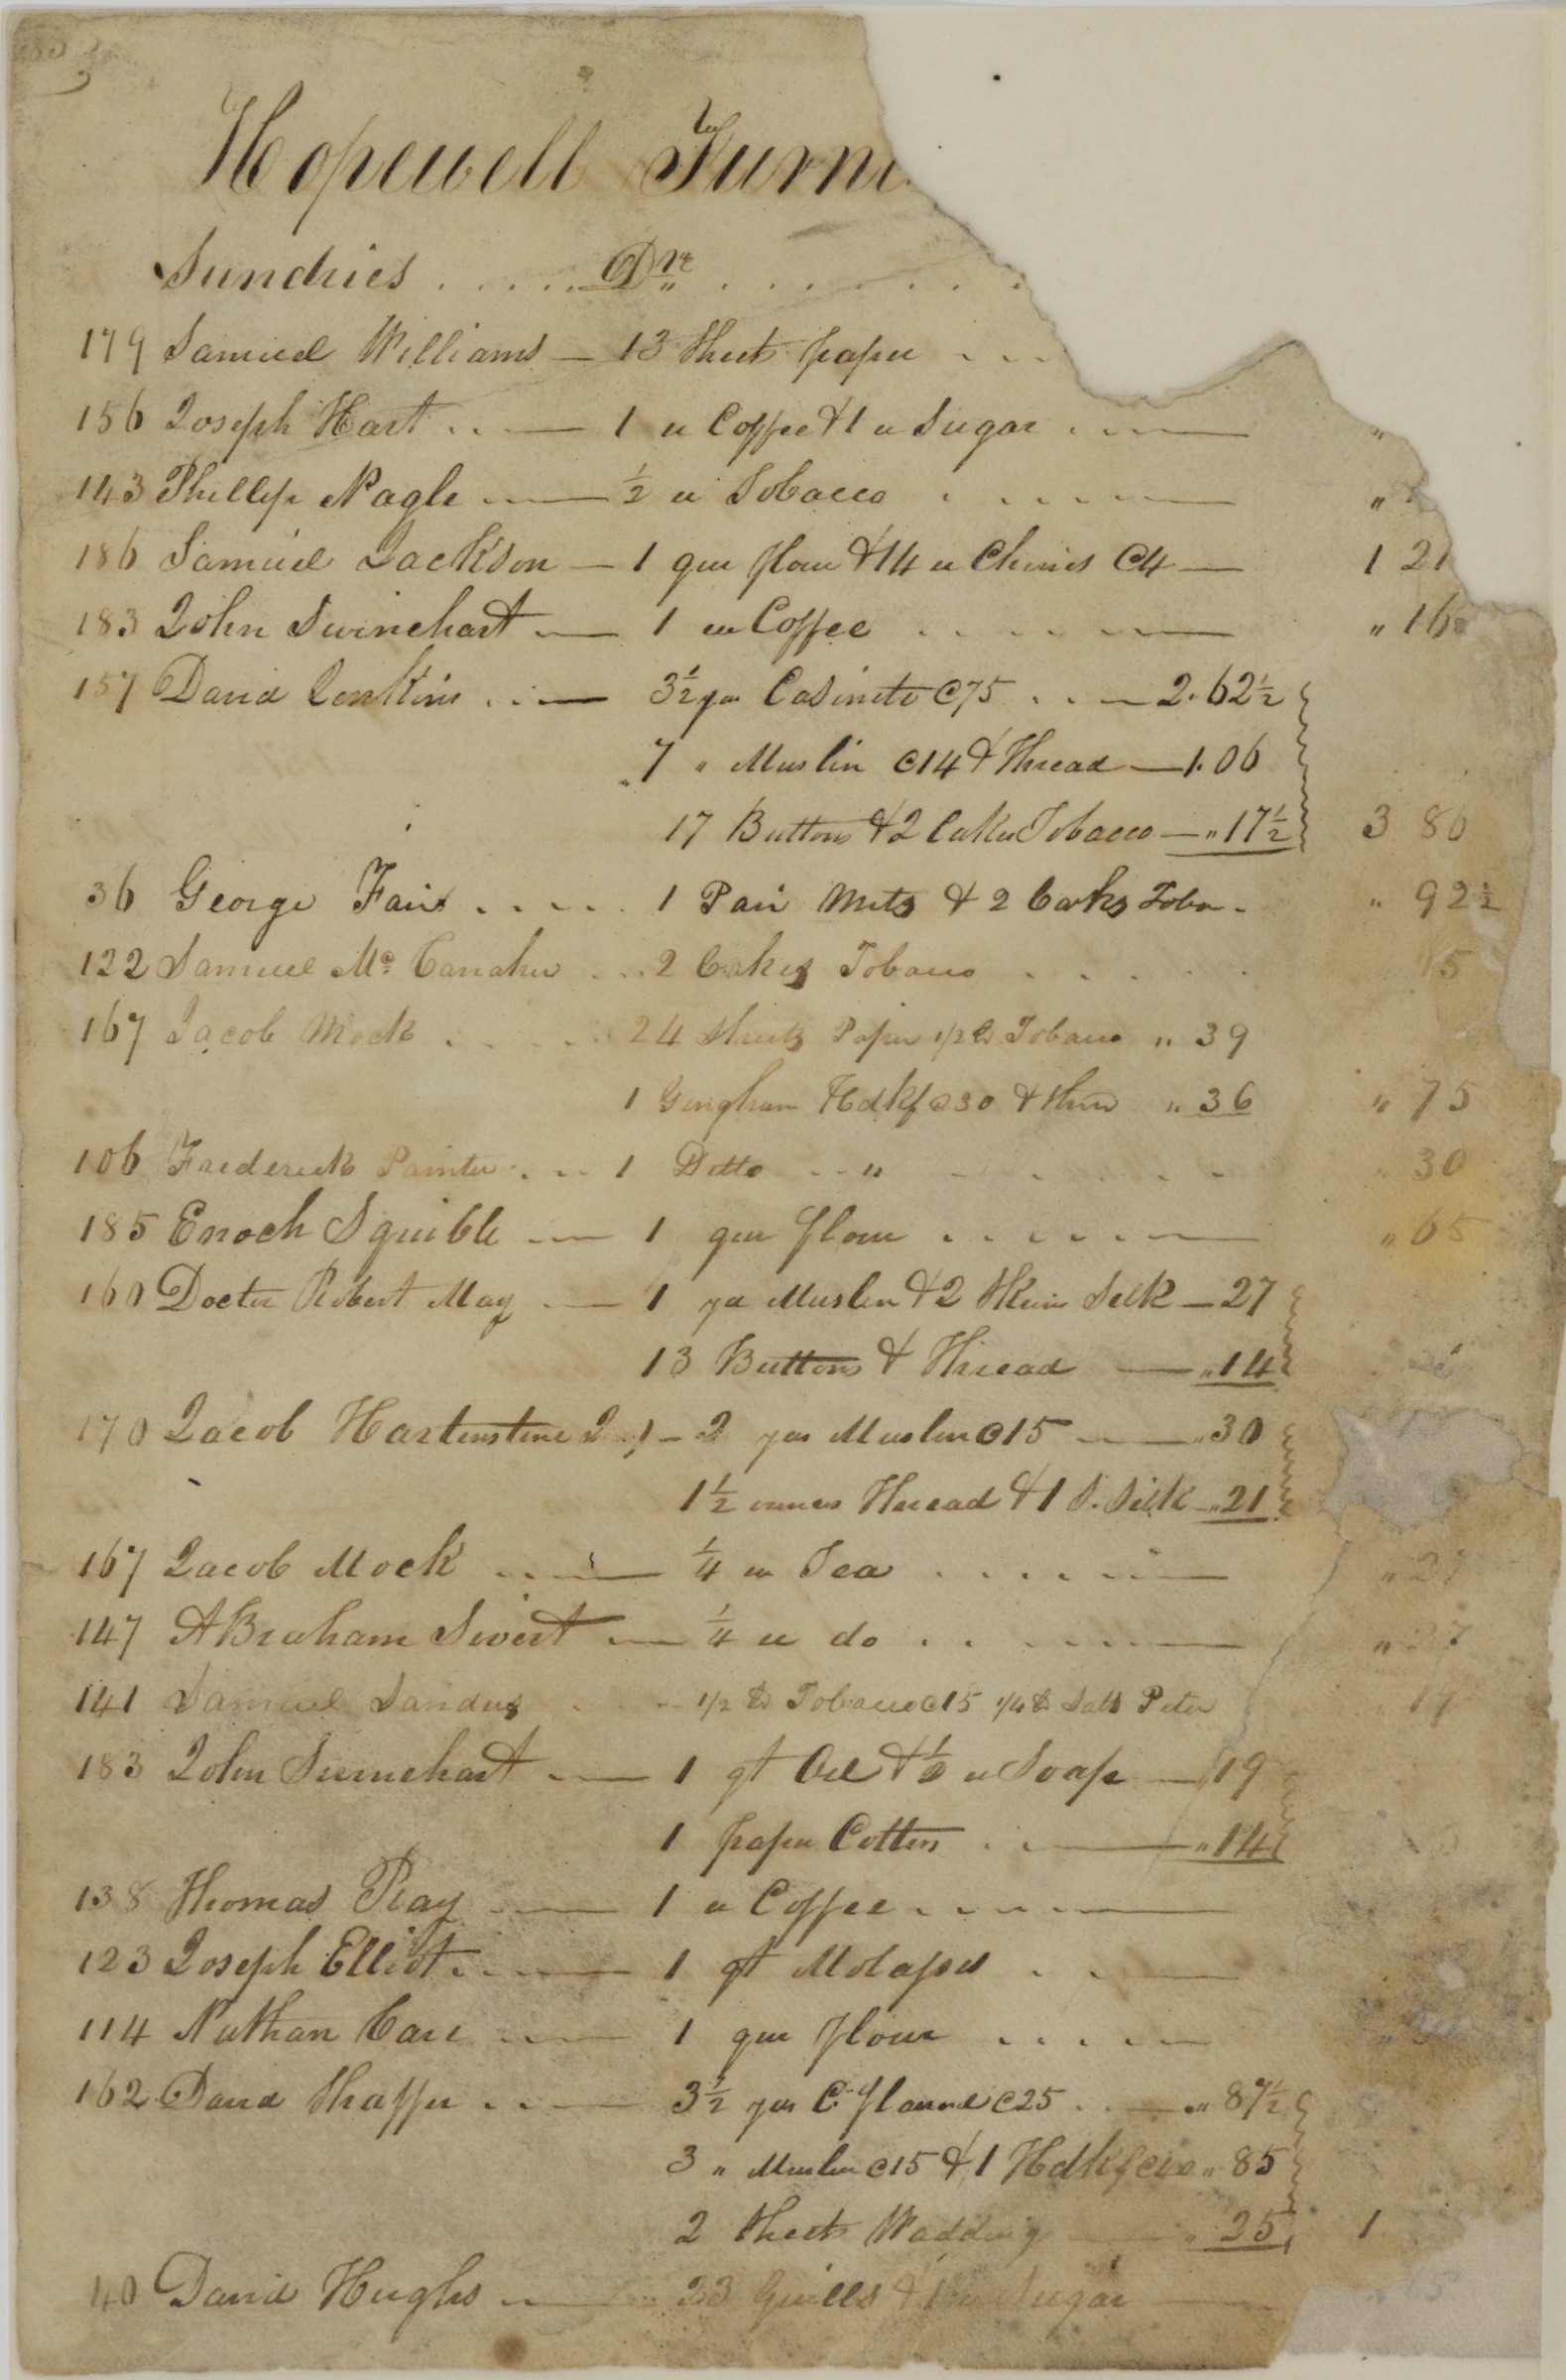 Hopewell Furn
Sundries ..... Dr
179 Samuel Williams — 13 Sheets paper
156 Joseph Hart — 1 " Coffee & 1 " Sugar "
143 Phillip Nagle — ½ " Tobacco "
186 Samuel Jackson — 1 qur flour & 14 " Chines @4 — 1 21
183 John Swinehart — 1 " Coffee " 16
157 David Jenkins — 3½ yds Casinete @75 — 2.62½
7 " Muslin @14 & Thread — 1.06
17 Buttons & 2 Cakes Tobacco — " 17½ 3 86
36 George Fair .... 1 Pair Mits & 2 Caks Toba " 92½
122 Samuel Mc Canahu 2 Cakes Tobacco 15
167 Jacob Mock 24 Sheets Paper 1/2 lb Tobacco " 39
1 Gingham Hdkf @30 & thrd " 36 " 75
106 Frederick Painter 1 Ditto " 30
185 Enoch Squibb — 1 qur flour " 65
160 Docter Robert May — 1 yd Muslin & 2 Skein Silk — 27
13 Buttons & Thread — " 14
170 Jacob Hartenstine — 2 yds Muslin @15 — " 30
1½ ounces Thread & 1 S. Silk — " 21
167 Jacob Mock — ¼ " Tea " 27
147 ABraham Sivert — ¼ " do " 27
141 Samuel Sandus 1/2 lb Tobacco @15 1/4 lb Salt Peter 19
183 John Swinehart — 1 qt Oil & ½ " Soap — 19
1 paper Cotton — " 14
138 Thomas Ray — 1 " Coffee
123 Joseph Elliot — 1 qt Molasses
114 Nathan Care — 1 qur flour
162 David Shaffer — 3½ yds C. flannel @25 " 87½
3 " Muslin @15 & 1 Hdkf @40 " 85
2 Sheets Wadding " 25 1
40 David Hughs — 23 Quills & 1 " Sugar